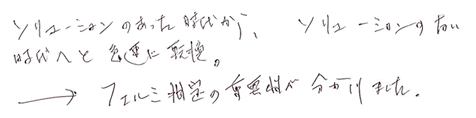 ソリューションのあった時代から、ソリューションのない
時代へと急速に転換。
→ フェルミ推定の重要性が分かりました。